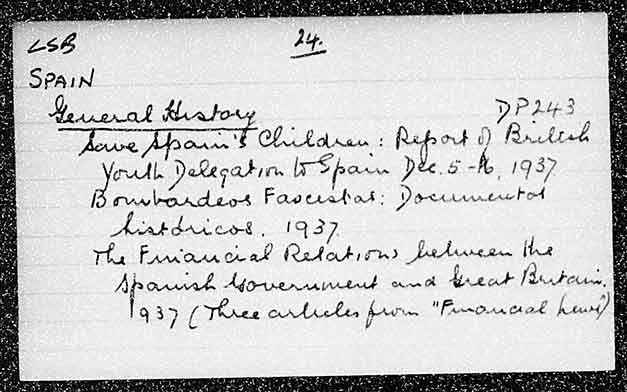 LSB 24.
SPAIN
General History DP243
Save Spain's Children: Report of British
Youth Delegation to Spain Dec. 5-16, 1937
Bombardeos Fascistas: Documentos
históricos. 1937.
The Financial Relations between the
Spanish Government and Great Britain.
1937 (Three articles from "Financial News")